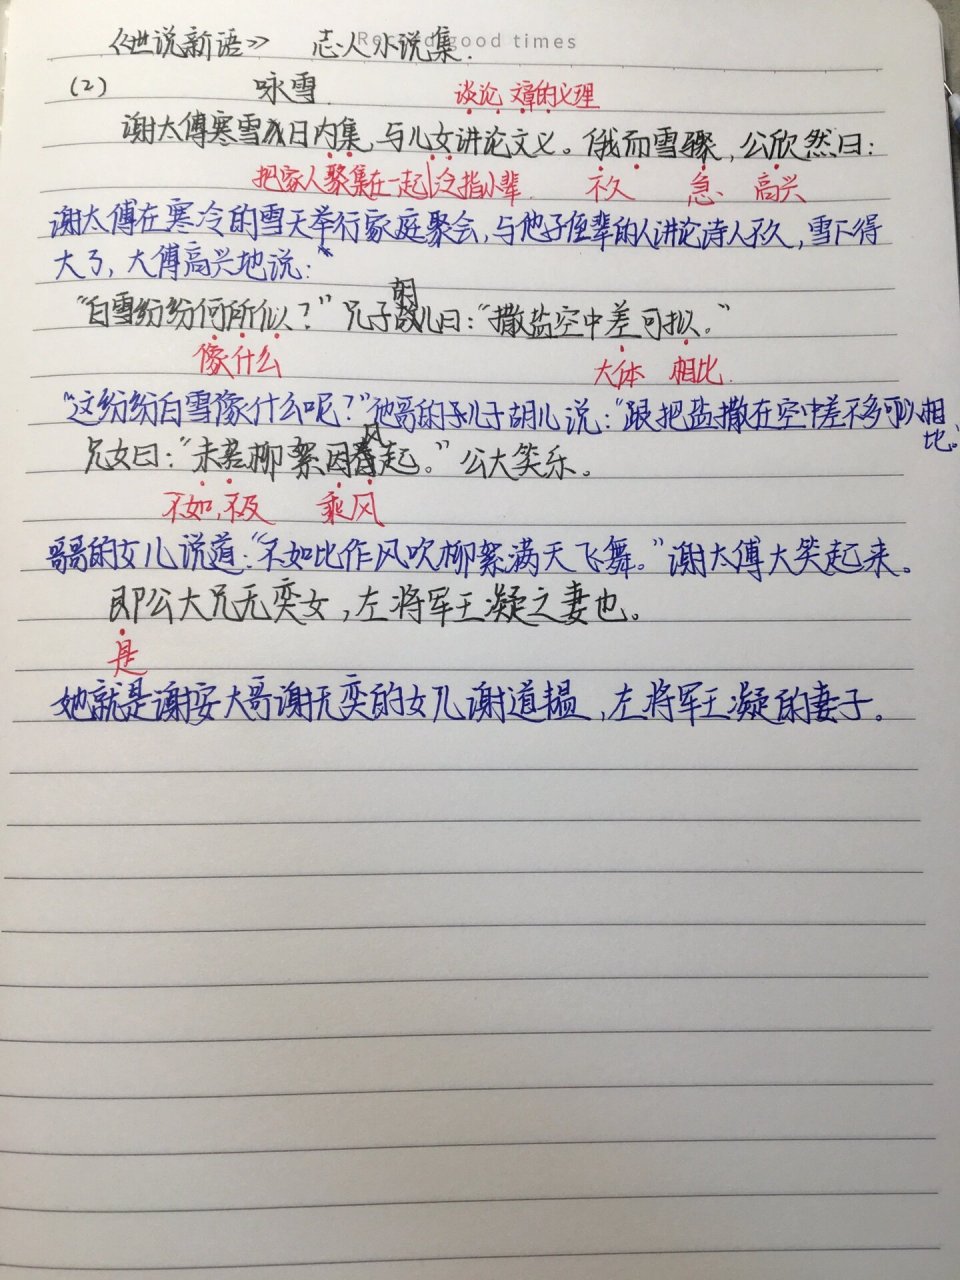 Record good times
《世说新语》 志人小说集.
(2) 咏雪. 谈论 文章的义理
谢太傅寒雪日内集,与儿女讲论文义。俄而雪骤,公欣然曰:
把家人聚集在一起 泛指小辈. 不久 急. 高兴
谢太傅在寒冷的雪天举行家庭聚会,与他子侄辈的人讲论诗人不久,雪下得
大了,太傅高兴地说:“
“白雪纷纷何所似?”兄子胡儿曰:“撒盐空中差可拟。”
像什么 大体 相比.
“这纷纷白雪像什么呢?”他哥的子儿子胡儿说:“跟把盐撒在空中差不多可以相
比。”
兄女曰:“未若柳絮因风起。”公大笑乐。
不如,不及 乘风
哥哥的女儿说道:“不如比作风吹柳絮满天飞舞。”谢太傅大笑起来。
即公大兄无奕女,左将军王凝之妻也。
是
她就是谢安大哥谢无奕的女儿谢道韫,左将军王凝的妻子。